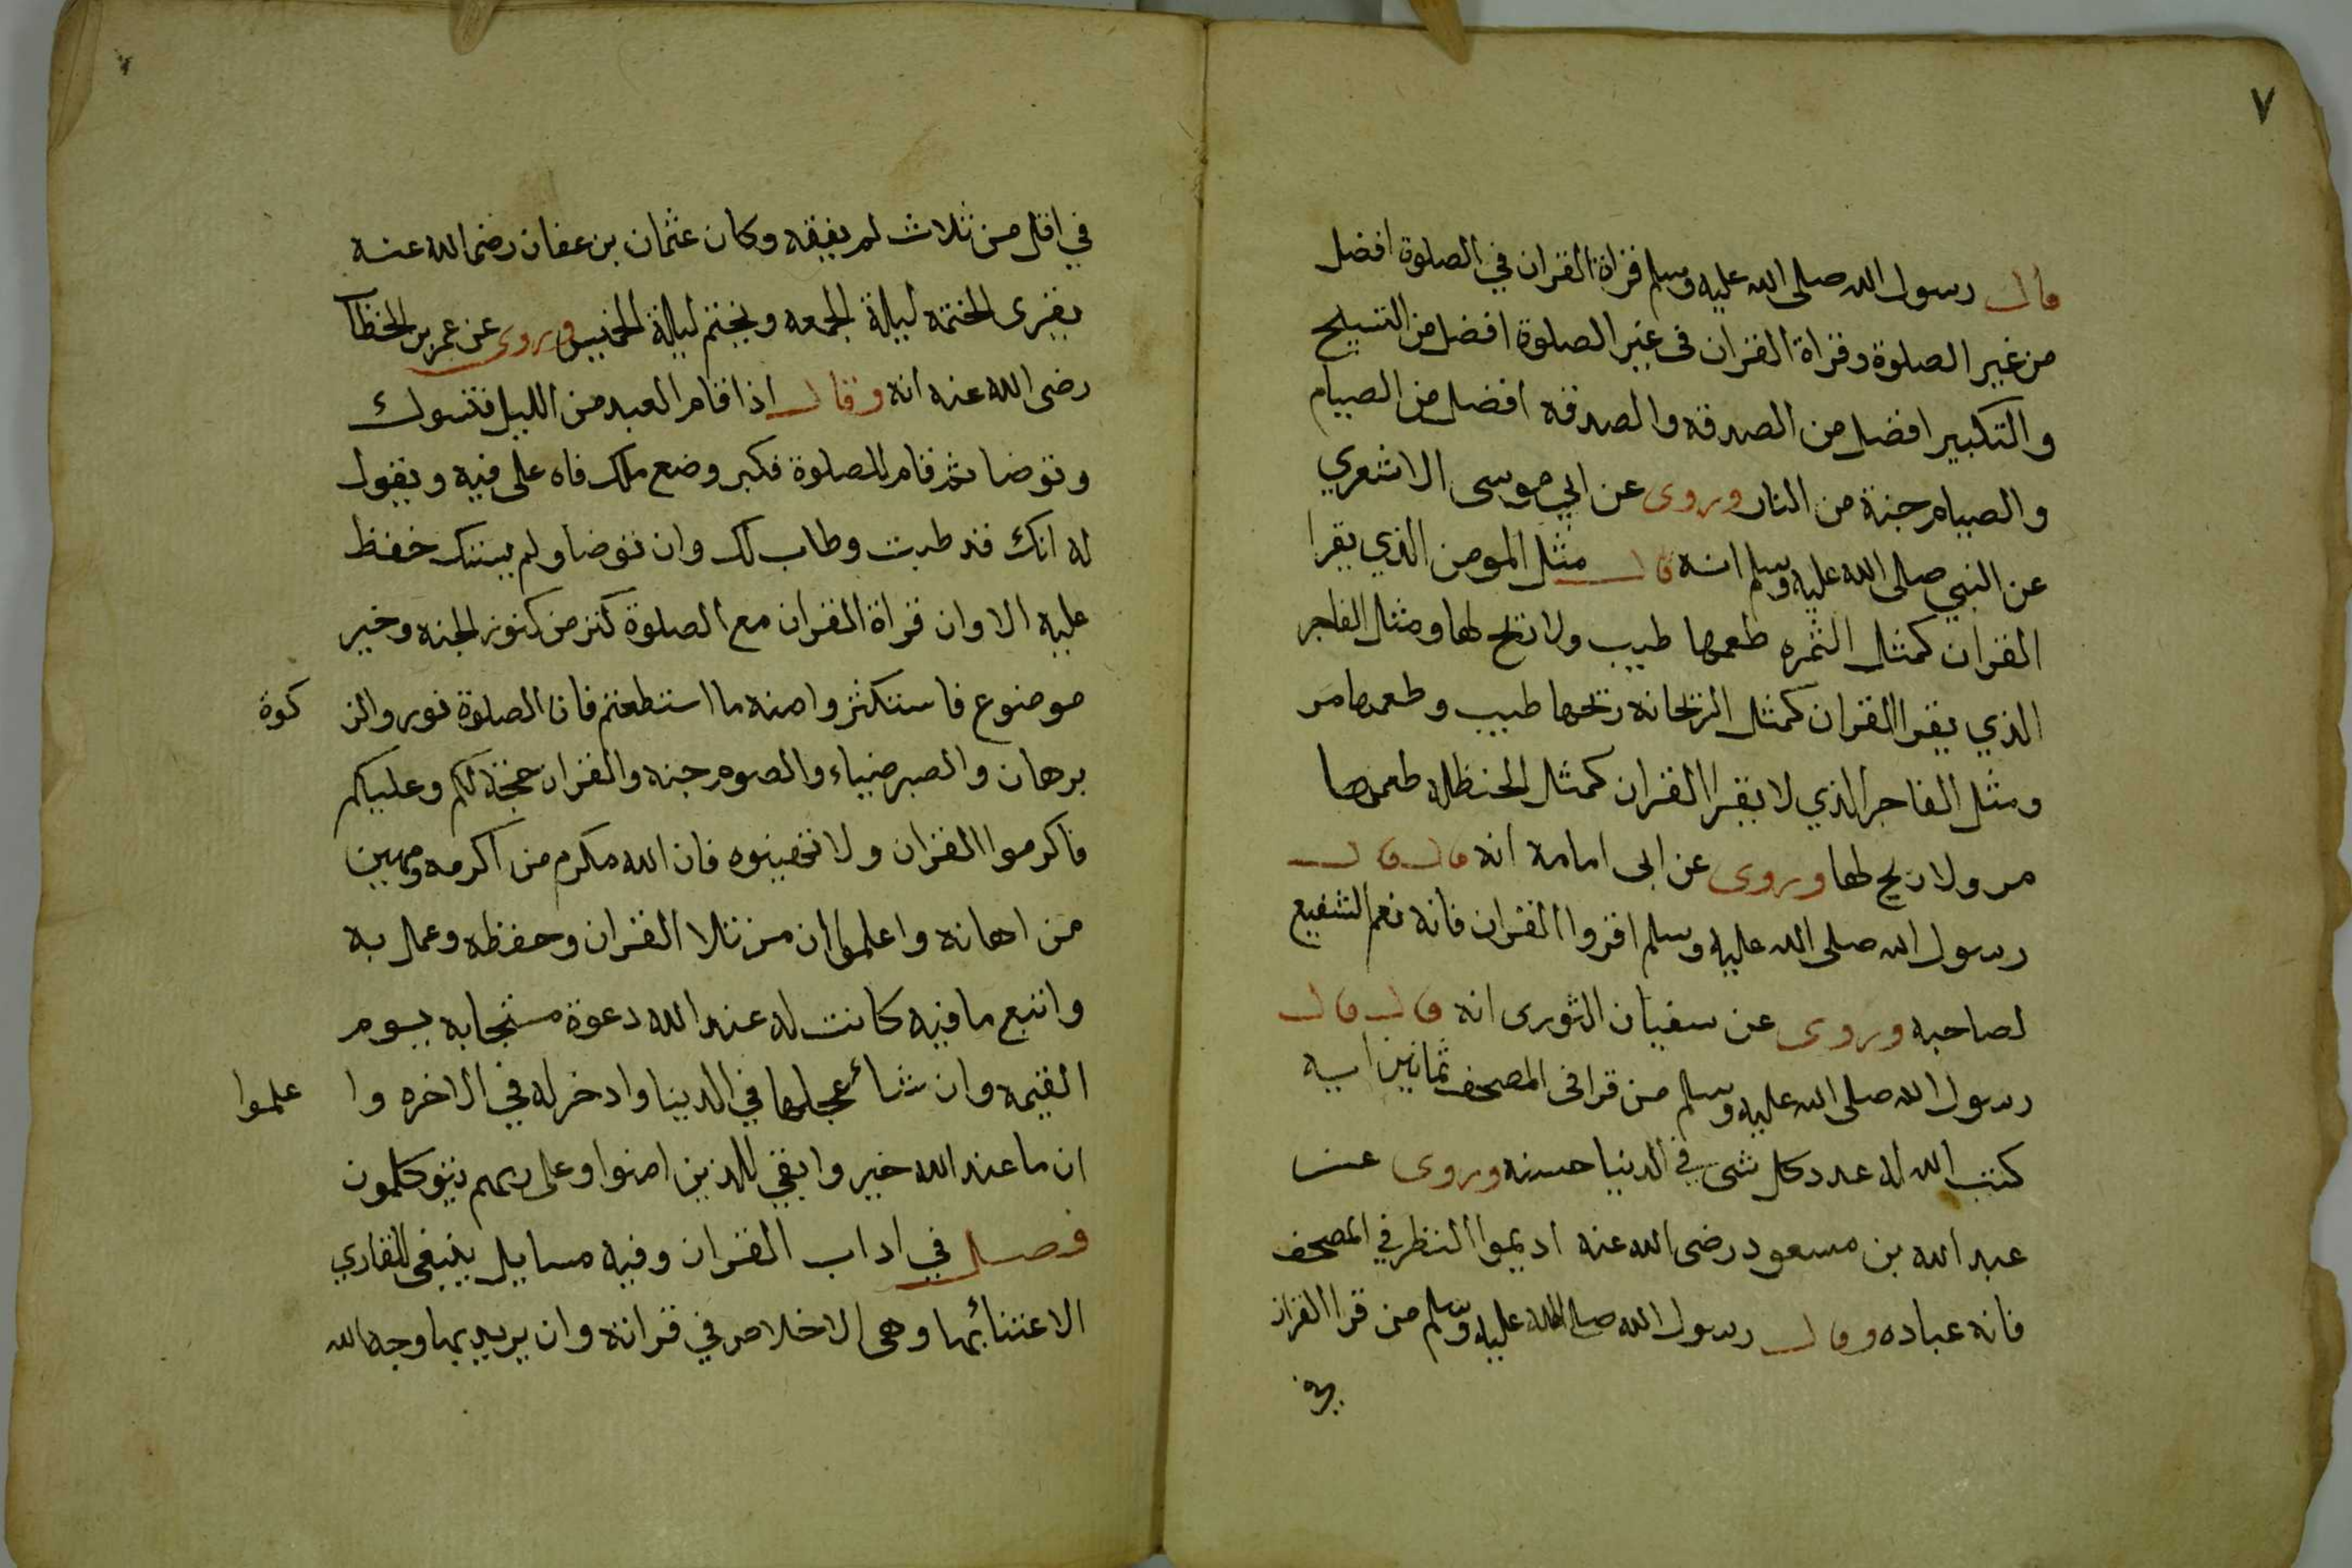 ٧
قال رسول الله صلى الله عليه وسلم قراة القران في الصلوة افضل
من غير الصلوة وقراة القران فى غير الصلوة افضل من التسبيح
والتكبير افضل من الصدقه والصدقه افضل من الصيام
والصيام جنة من النار وروى عن ابي موسى الاشعري
عن النبي صلى الله عليه وسلم انه قال مثل المومن الذي يقرا
القران كمثل الثمره طعمها طيب ولا ريح لها ومثل الفاجر
الذي يقرا القران كمثل الريحانه ريحها طيب وطعمها مر
ومثل الفاجر الذي لا يقرا القران كمثل الحنظله طعمها
مر ولا ريح لها وروى عن ابى امامة انه قال قال
رسول الله صلى الله عليه وسلم اقروا القران فانه نعم الشفيع
لصاحبه وروى عن سفيان الثورى انه قال قال
رسول الله صلى الله عليه وسلم من قرا فى المصحف ثمانين ايه
كتب الله له عدد كل شى في الدنيا حسنه وروى عن
عبد الله بن مسعود رضى الله عنه اديموا النظر في المصحف
فانه عباده وقال رسول الله صلى الله عليه وسلم من قرا القران
في
في اقل من ثلاث لم يفقه وكان عثمان بن عفان رضى الله عنه
يقرى الختمه ليلة الجمعه ويختم ليلة الخميس وروى عن عمر بن الخطاب
رضى الله عنه انه وقال اذا قام العبد من الليل فتسوك
وتوضا ثم قام للصلوة فكبر وضع ملك فاه على فيه ويقول
له انك قد طبت وطاب لك وان توضا ولم يستك حفظ
عليه الا وان قراة القران مع الصلوة كنز من كنوز الجنه وخير
موضوع فاستكثروا منه ما استطعتم فان الصلوة نور والز كوة
برهان والصبر ضياء والصوم جنه والقران حجة لكم وعليكم
فاكرموا القران ولا تهينوه فان الله مكرم من اكرمه ومهين
من اهانه واعلموا ان من تلا القران وحفظه وعمل به
واتبع ما فيه كانت له عند الله دعوة مستجابه يوم
القيمه وان شاء عجلها في الدنيا وادخر له في الاخره وا علموا
ان ما عند الله خير وابقي للذين امنوا وعلى ربهم يتوكلون
فصل في اداب القران وفيه مسايل ينبغى للقاري
الاعتناء بها وهى الاخلاص في قراته وان يريد بها وجه الله